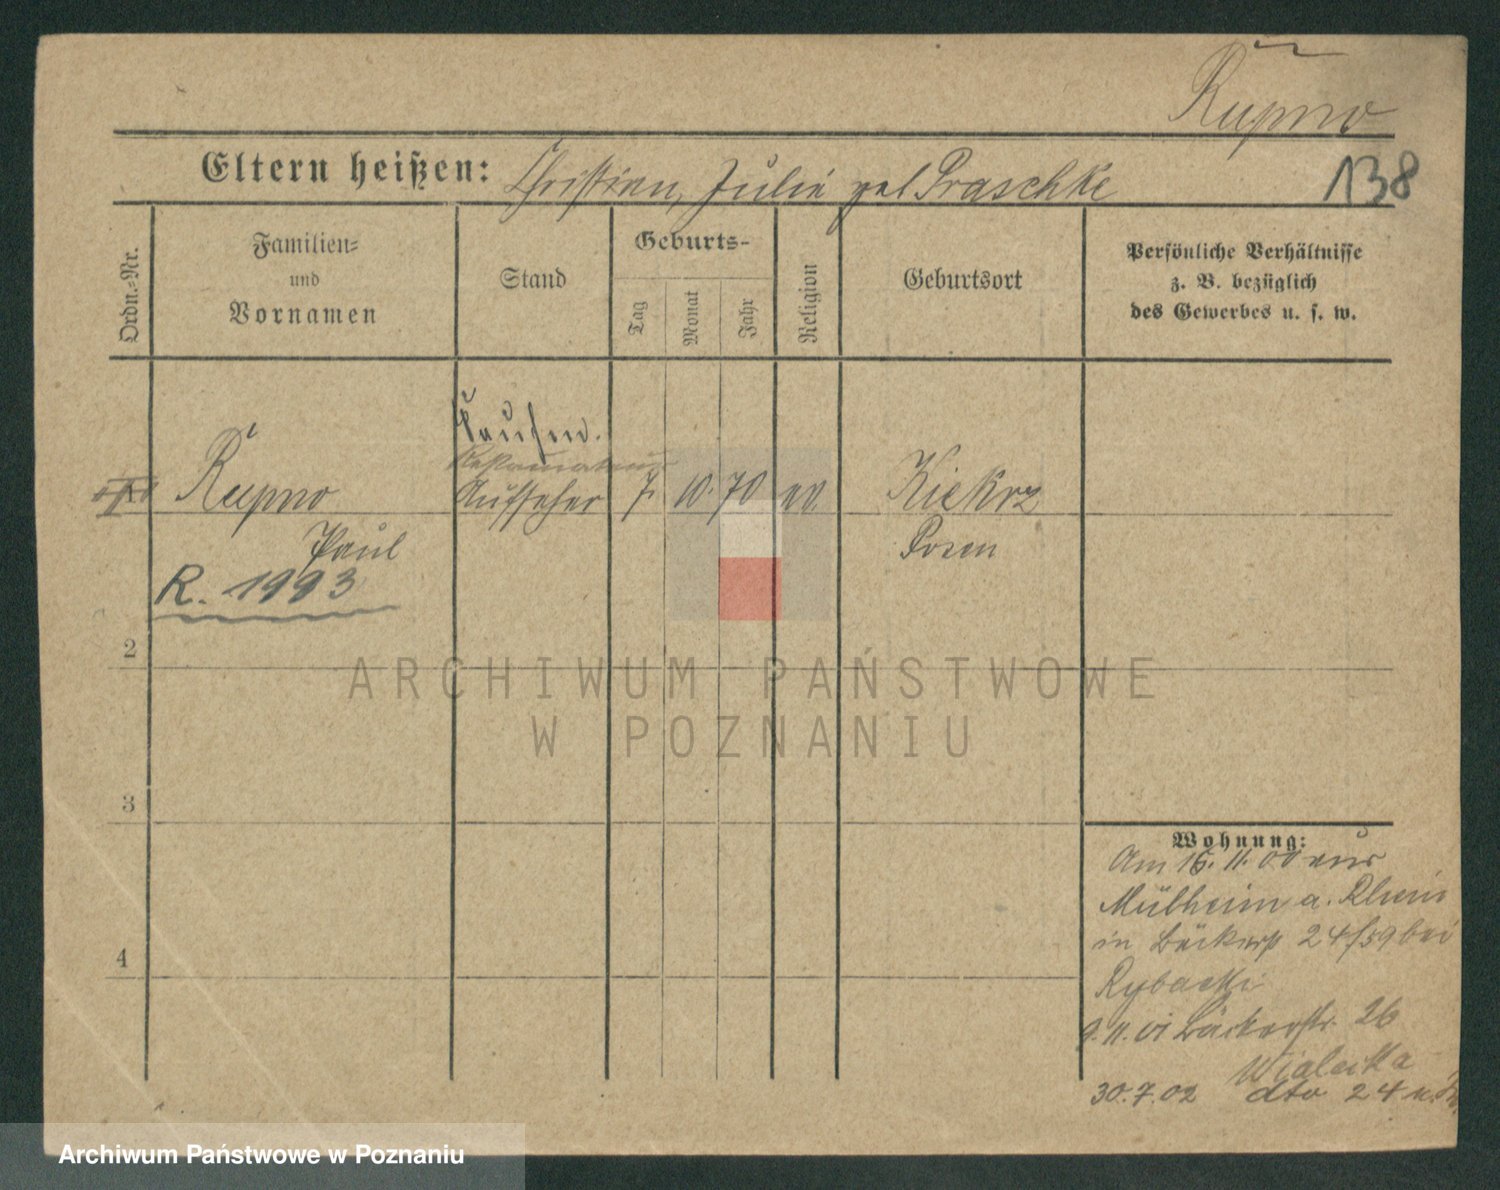 Rupno
Eltern heißen: Christian, Julie geb Praschke
138
Ordn.-Nr.
Familien-
und
Vornamen
Stand
Geburts-
Tag
Monat
Jahr
Religion
Geburtsort
Persönliche Verhältnisse
z. B. bezüglich
des Gewerbes u. s. w.
Kaufm.
Rupno Aufseher 7. 10. 70 Kiekrz
Paul Posen
R. 1993
2
ARCHIWUM PAŃSTWOWE
W POZNANIU
3
Wohnung:
Am 16. 11. 00 aus
Mülheim a. Rhein
in Bäckerst 24/59 bei
Rybacki
9. 11. 01 Bäckerstr. 26
Wialecka
30.7.02 dto 24
4
Archiwum Państwowe w Poznaniu